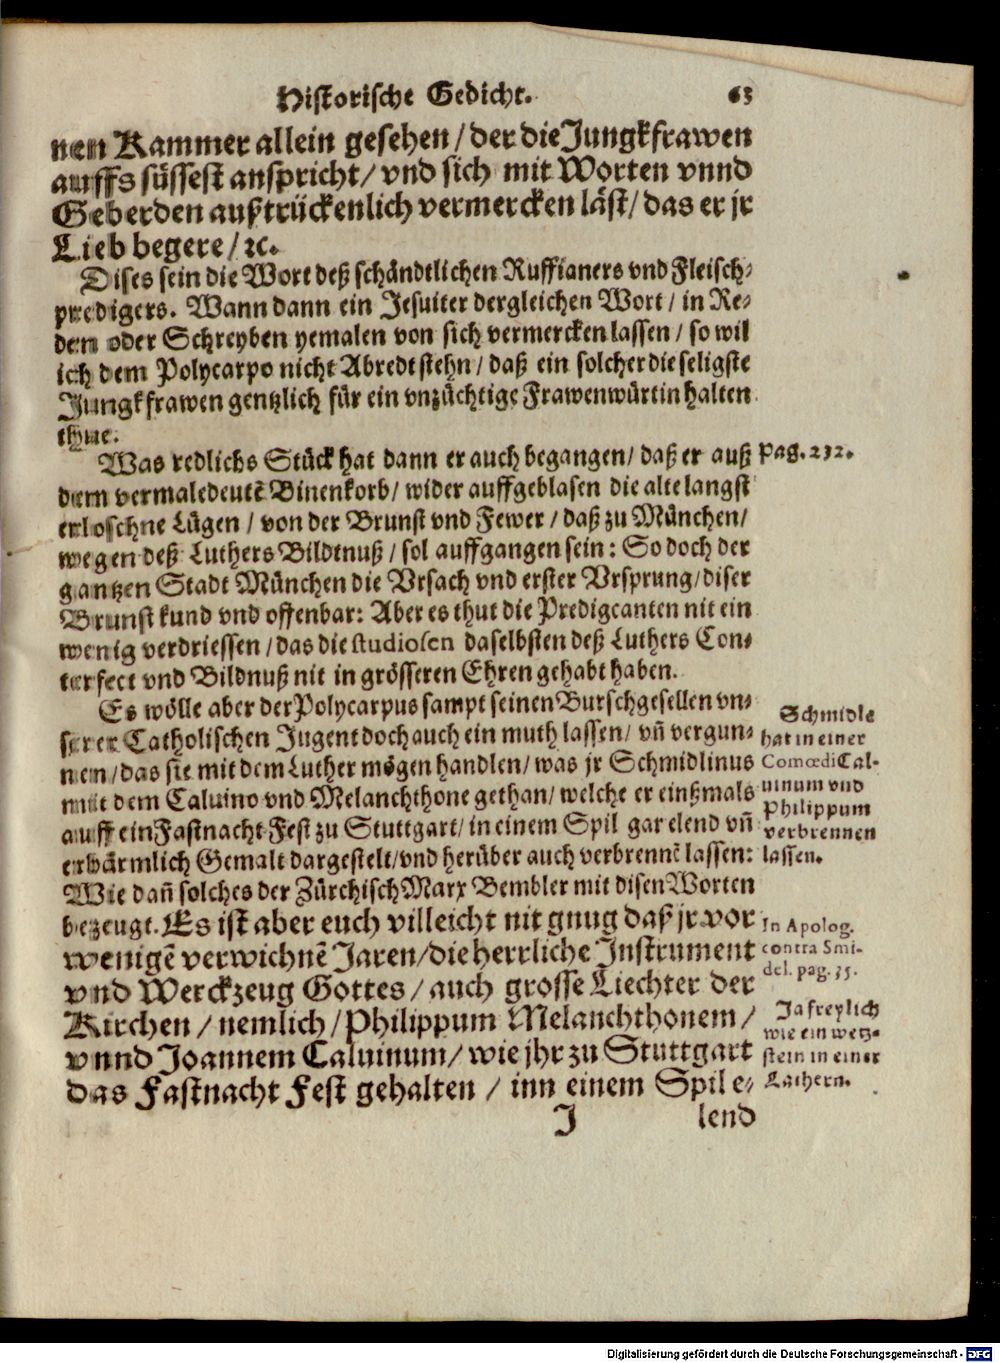 Historische Gedicht. 63
nen Kammer allein gesehen / der die Jungkfrawen
auffs süssest anspricht / vnd sich mit Worten vnnd
Geberden außtrückenlich vermercken läst / das er jr
Lieb begere / ꝛc.
Dises sein die Wort deß schändtlichen Ruffianers vnd Fleisch-
predigers. Wann dann ein Jesuiter dergleichen Wort / in Re-
den oder Schreyben yemalen von sich vermercken lassen / so wil
ich dem Polycarpo nicht Abredt stehn / daß ein solcher die seligste
Jungkfrawen gentzlich für ein vnzüchtige Frawenwürtin halten
thue.
Was redlichs Stück hat dann er auch begangen / daß er auß
dem vermaledeutẽ Binenkorb / wider auffgeblasen die alte langst
erloschne Lügen / von der Brunst vnd Fewer / daß zu München /
wegen deß Luthers Bildtnuß / sol auffgangen sein: So doch der
gantzen Stadt München die Vrsach vnd erster Vrsprung / diser
Brunst kund vnd offenbar: Aber es thut die Predigcanten nit ein
wenig verdriessen / das die studiosen daselbsten deß Luthers Con-
terfect vnd Bildnuß nit in grösseren Ehren gehabt haben.
pag. 232.
Es wölle aber der Polycarpus sampt seinen Burschgesellen vn-
serer Catholischen Jugent doch auch ein muth lassen / vñ vergun-
nen / das sie mit dem Luther mögen handlen / was jr Schmidlinus
mit dem Caluino vnd Melanchthone gethan / welche er einßmals
auff ein Fastnacht Fest zu Stuttgart / in einem Spil gar elend vñ
erbärmlich Gemalt dargestelt / vnd herüber auch verbrennẽ lassen:
Wie dañ solches der Zürchisch Marx Bembler mit disen Worten
bezeugt. Es ist aber euch villeicht nit gnug daß jr vor
wenigẽ verwichnẽ Jaren / die herrliche Instrument
vnd Werckzeug Gottes / auch grosse Liechter der
Kirchen / nemlich / Philippum Melanchthonem /
vnnd Joannem Caluinum / wie jhr zu Stuttgart
das Fastnacht Fest gehalten / inn einem Spil e-
Schmidle
hat in einer
Comœdi Cal-
uinum vnd
Philippum
verbrennen
lassen.
In Apolog.
contra Smi-
del. pag. 35.
Ja freylich
wie ein wetz-
stein in einer
Lathern.
J lend
Digitalisierung gefördert durch die Deutsche Forschungsgemeinschaft - DFG